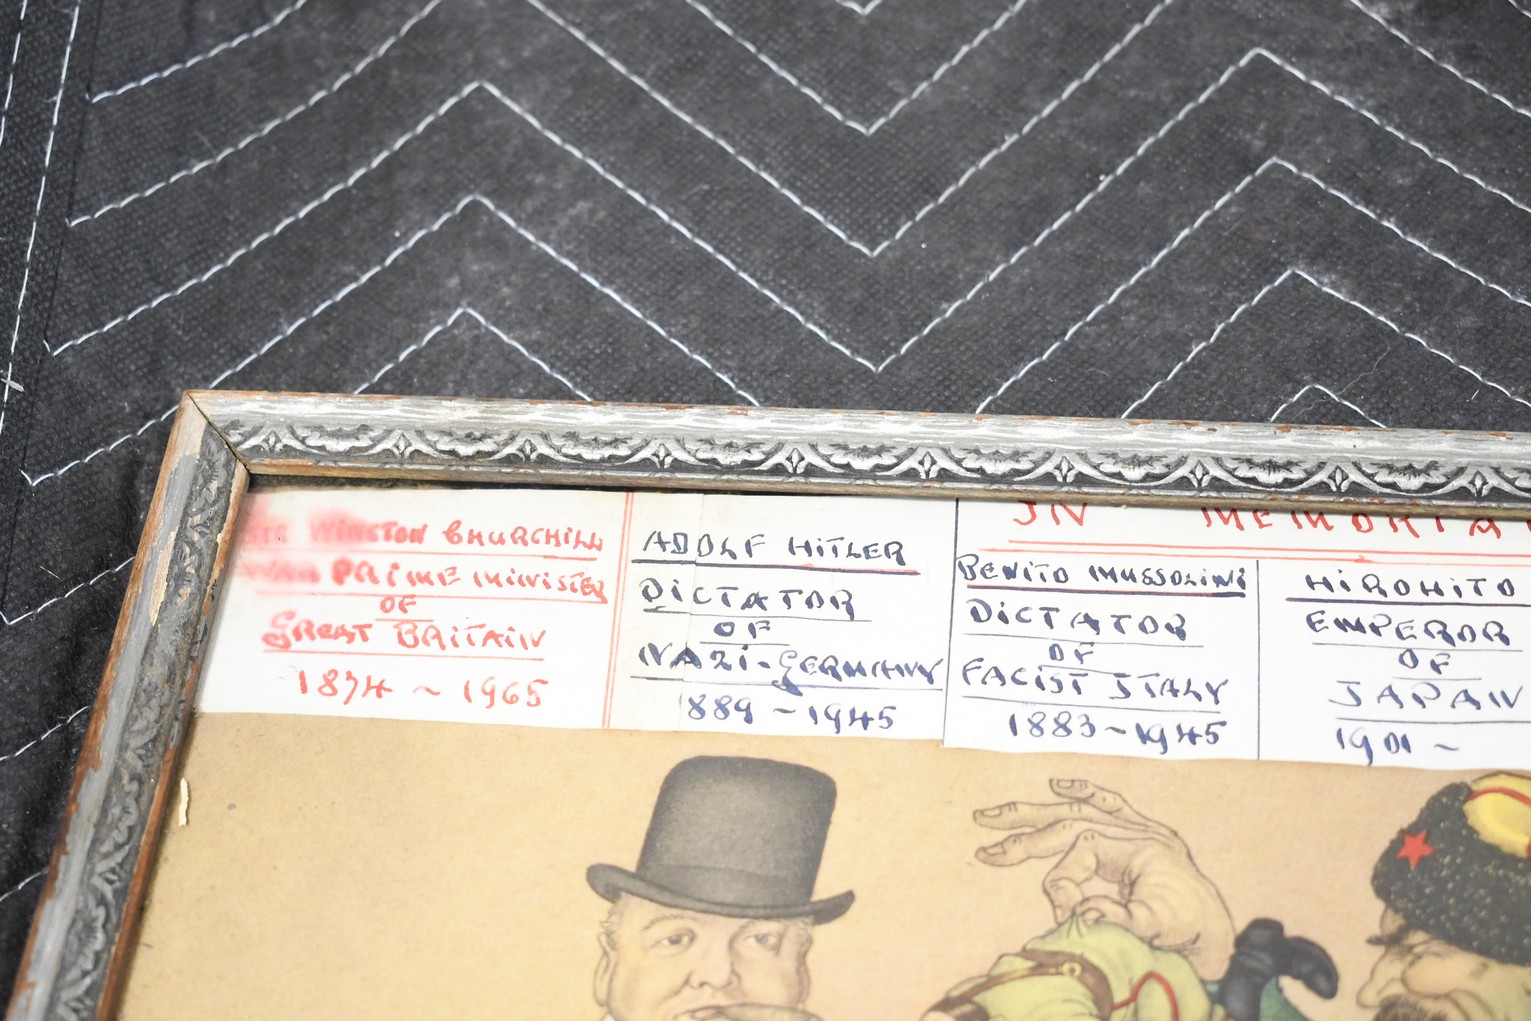 Sir WINSTON CHURCHILL
WAR PRIME MINISTER
OF
GREAT BRITAIN
1874 ~ 1965
ADOLF HITLER
DICTATOR
OF
NAZI-GERMANY
1889 ~ 1945
IN MEMORIA
BENITO MUSSOLINI
DICTATOR
OF
FACIST ITALY
1883 ~ 1945
HIROHITO
EMPEROR
OF
JAPAN
1901 ~